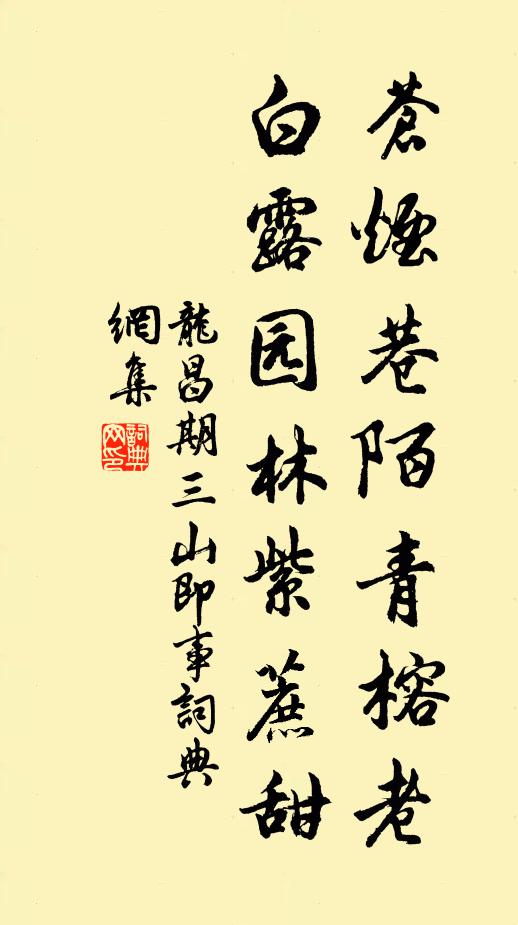 蒼煙巷陌青榕老
白露园林紫蔗甜
龍昌期三山即事詞典
網集
詞典网印